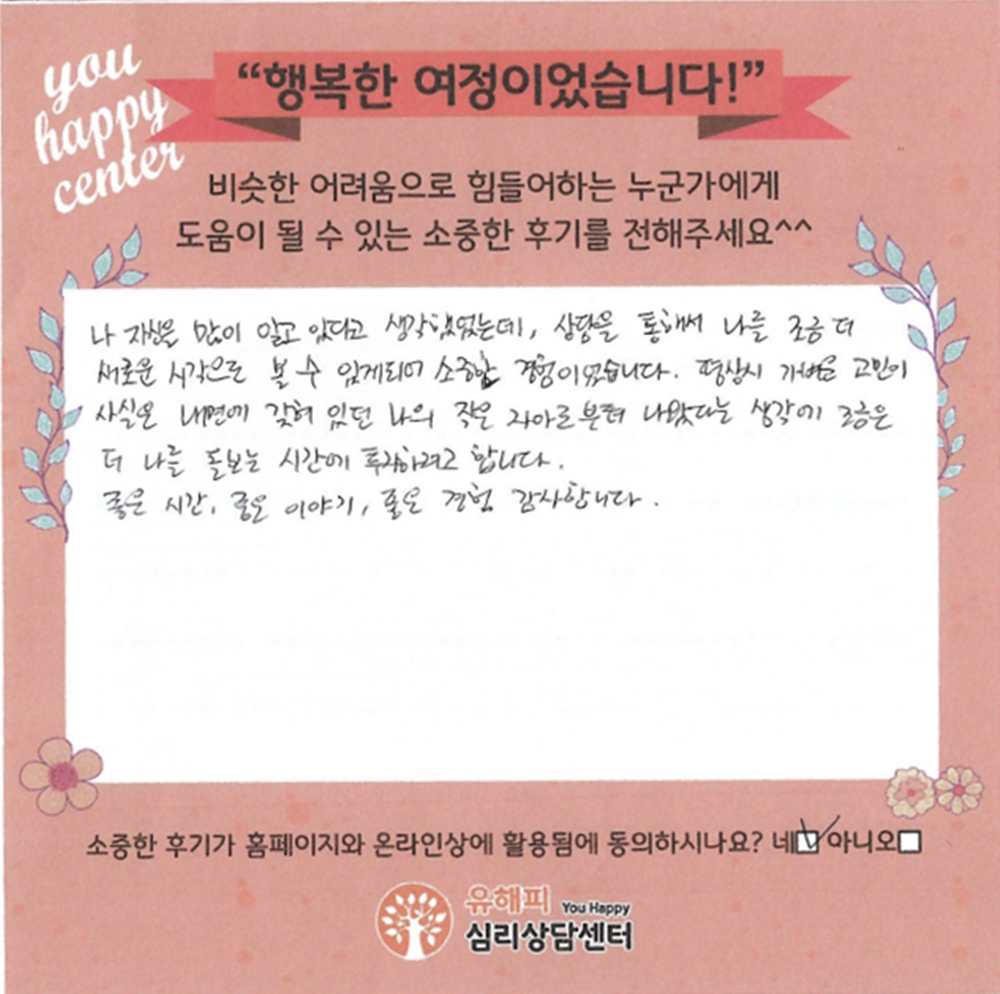 you
happy
center
“행복한 여정이었습니다!”
비슷한 어려움으로 힘들어하는 누군가에게
도움이 될 수 있는 소중한 후기를 전해주세요^^
나 자신을 많이 알고 있다고 생각했었는데, 상담을 통해서 나를 조금 더
새로운 시각으로 볼 수 있게되어 소중한 경험이었습니다. 평상시 가벼운 고민이
사실은 내면에 갖혀 있던 나의 작은 자아로부터 나왔다는 생각에 조금은
더 나를 돌보는 시간에 투자하려고 합니다.
좋은 시간, 좋은 이야기, 좋은 경험 감사합니다.
소중한 후기가 홈페이지와 온라인상에 활용됨에 동의하시나요? 네☑ 아니오☐
유해피 You Happy
심리상담센터